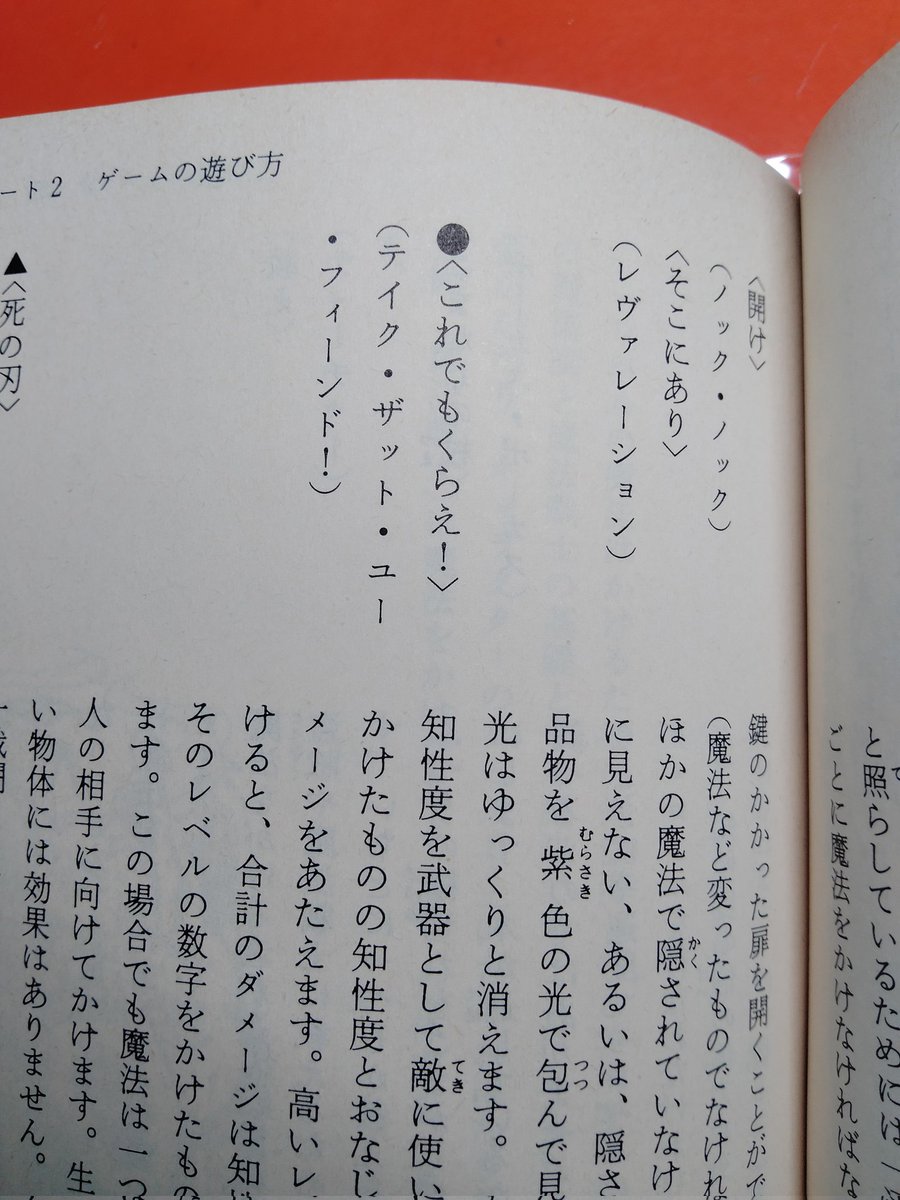 と照らしているためには一
ごとに魔法をかけなければな
ート2 ゲームの遊び方
〈開け〉
(ノック・ノック)
鍵のかかった扉を開くことがで
(魔法など変ったものでなけれ
〈そこにあり〉
(レヴァレーション)
ほかの魔法で隠されていなけ
に見えない、あるいは、隠さ
品物を紫色の光で包んで見
光はゆっくりと消えます。
●〈これでもくらえ!〉
(テイク・ザット・ユー
・フィーンド!)
知性度を武器として敵に使い
かけたものの知性度とおなじ
メージをあたえます。高いレ
けると、合計のダメージは知
そのレベルの数字をかけたもの
ます。この場合でも魔法は一つ
人の相手に向けてかけます。生
い物体には効果はありません。
▲〈死の刃〉